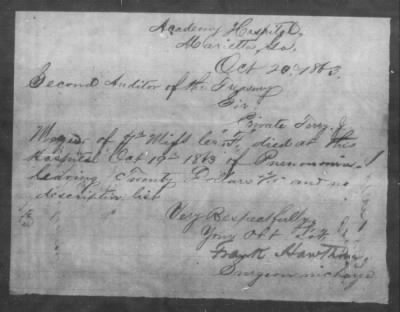 Academy Hospital,
Marietta, Ga.
Oct 20th 1863.
Second Auditor of the Treasury
Sir:
Private Terry
of 7th Miss died at this
Hospital Oct 19th 1863 of Pneumonia
leaving Twenty Dollars and no
descriptive list
Very Respectfully
Your Obt
Frank Hawthorn
Surgeon in charge